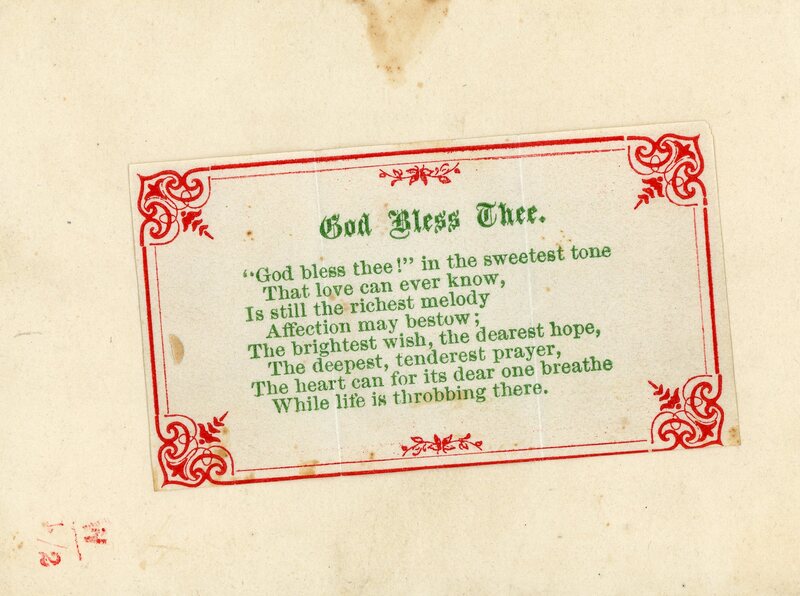 God Bless Thee.
“God bless thee!” in the sweetest tone
That love can ever know,
Is still the richest melody
Affection may bestow;
The brightest wish, the dearest hope,
The deepest, tenderest prayer,
The heart can for its dear one breathe
While life is throbbing there.